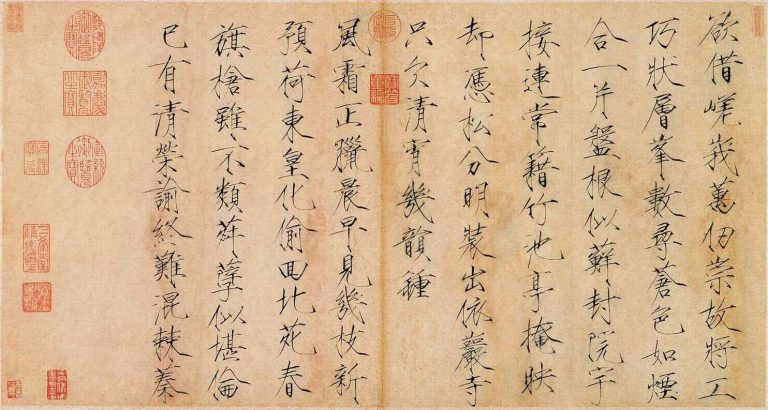 欲借嵯峨萬仞崇故將工
巧狀層峯數尋蒼色如煙
合一片盤根似蘚封院宇
接連常籍竹池亭掩映
却憑松分明裝出依巖寺
只欠清宵幾韻鍾
風霜正臘晨早見幾枝新
預荷東皇化偷囬北苑春
旗槍雖不類荈孽似堪倫
已有清榮諭終難混棘蓁